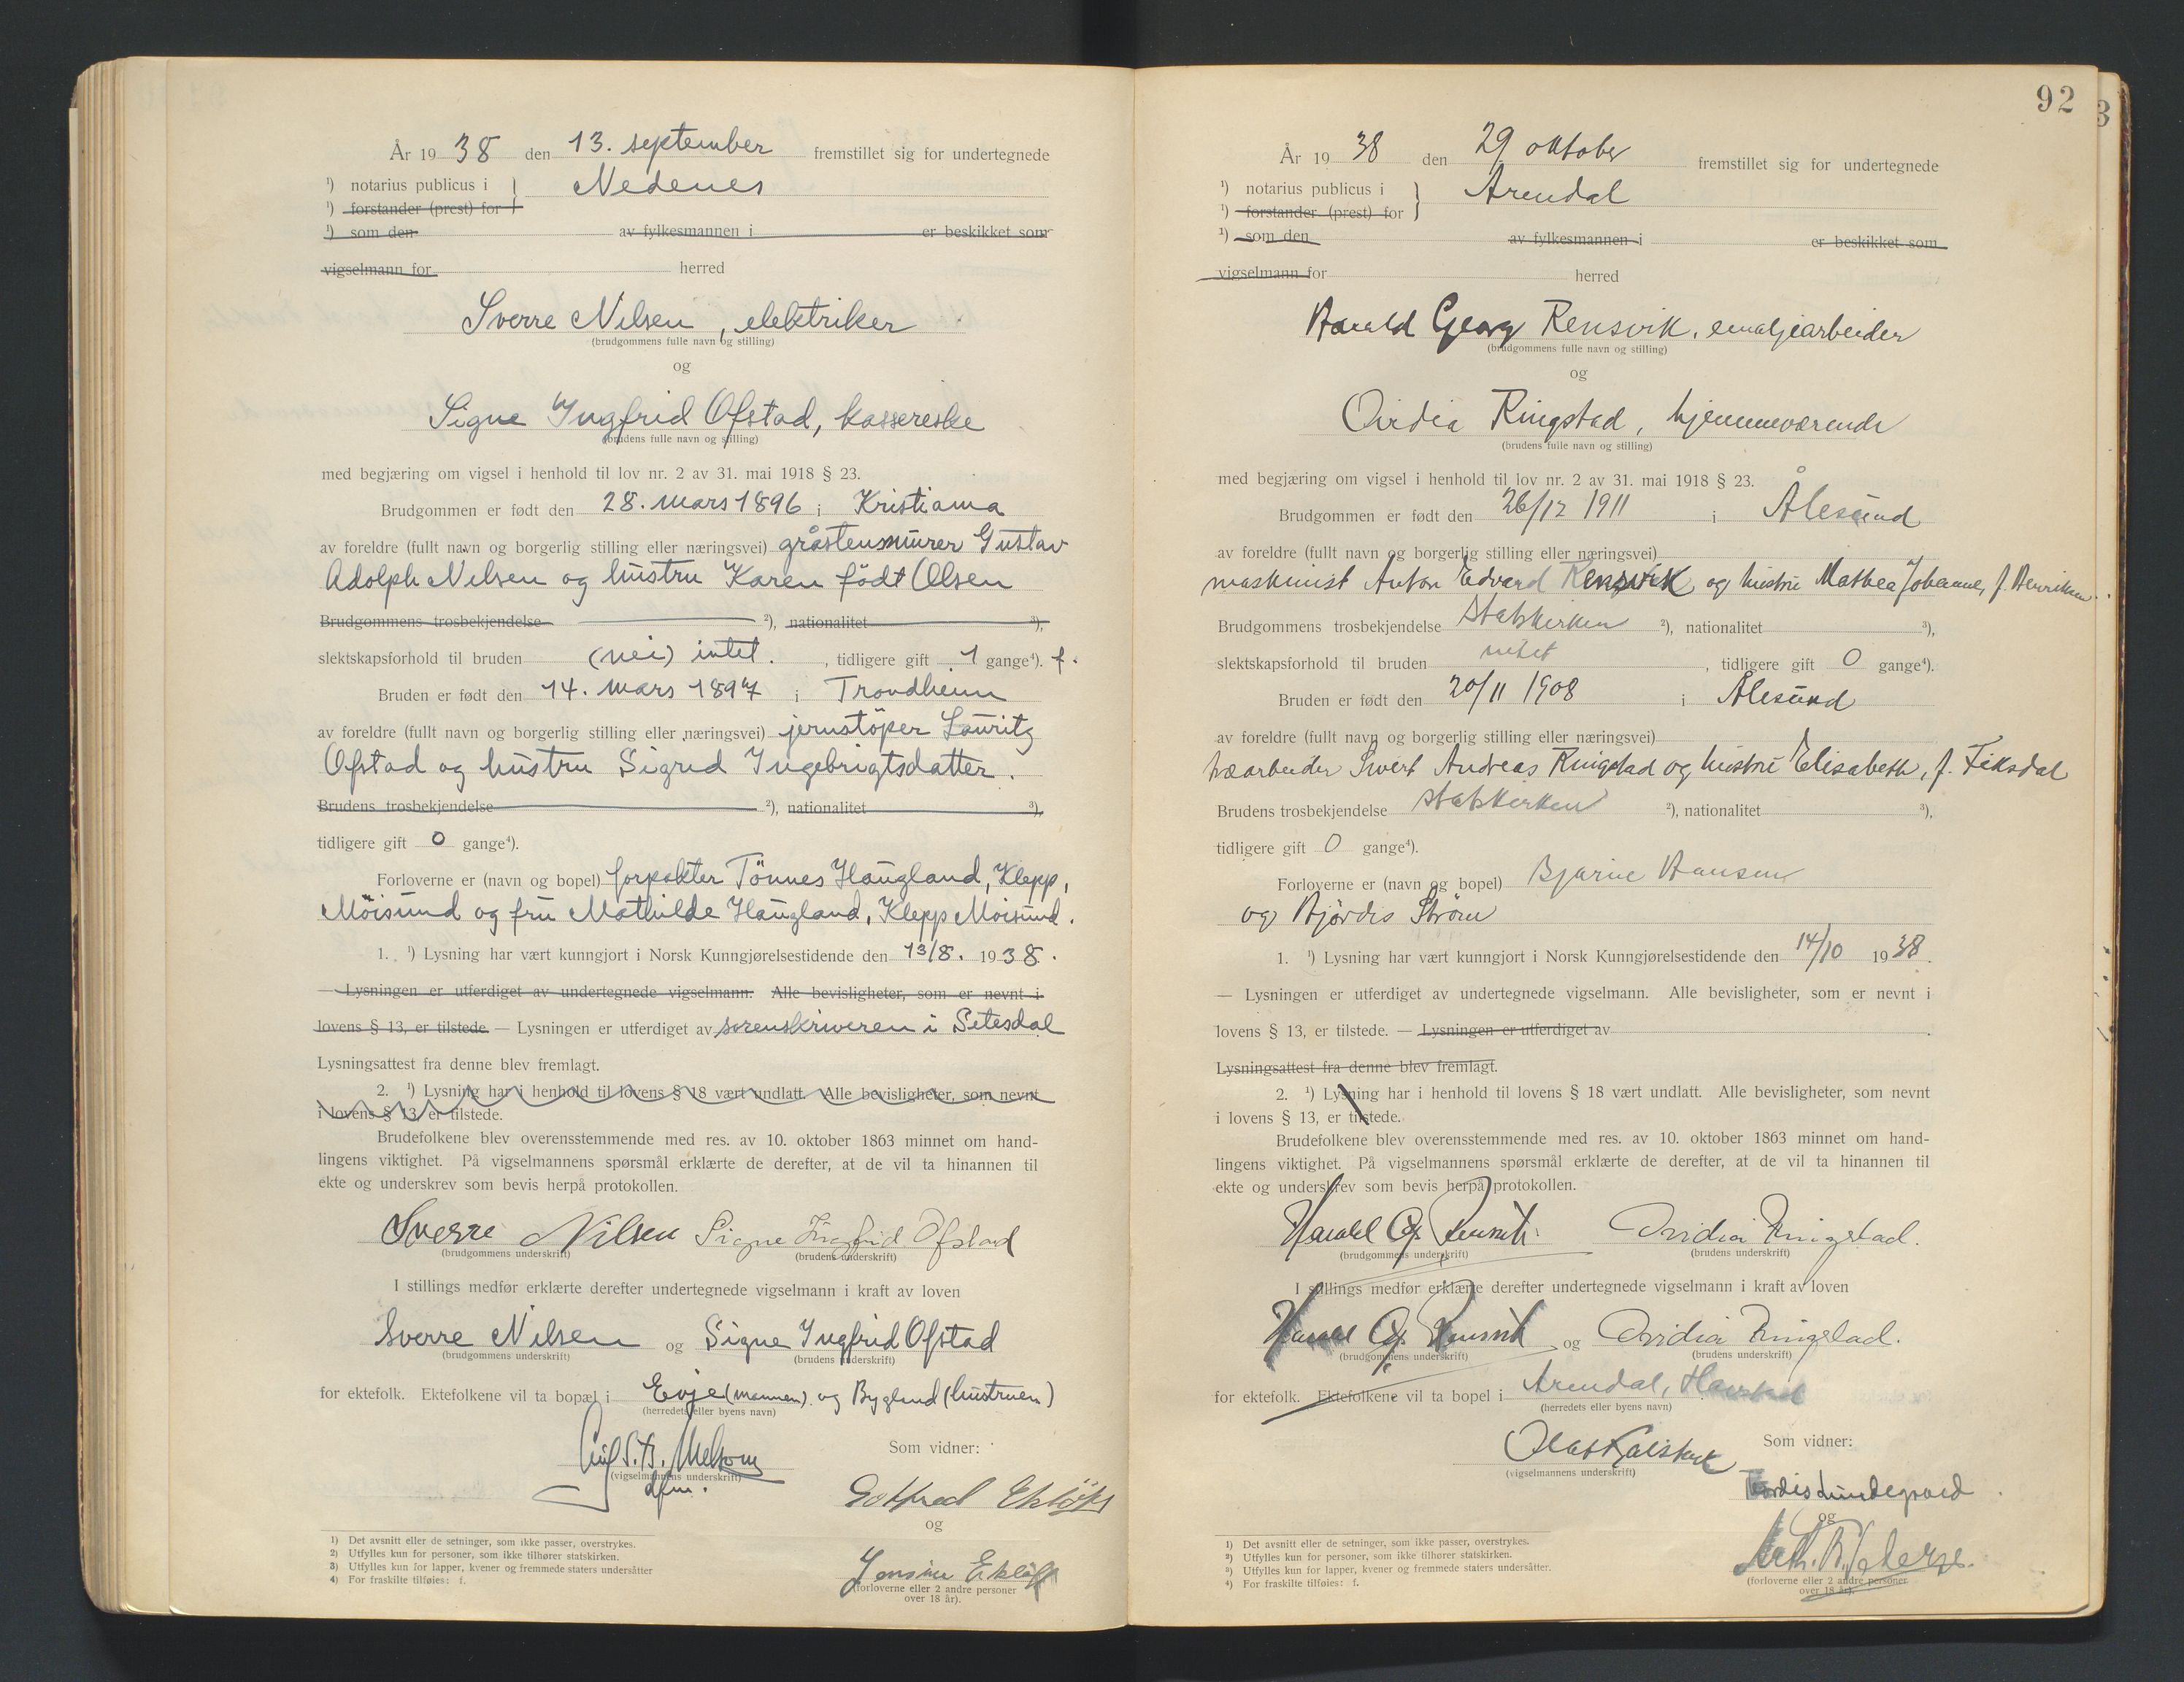 År 19 38 den 13. september fremstillet sig for undertegnede
¹) notarius publicus i } Nedenes
¹) forstander (prest) for
¹) som den av fylkesmannen i er beskikket som
vigselmann for herred
Sverre Nilsen, elektriker
(brudgommens fulle navn og stilling)
og
Signe Ingfrid Ofstad, kassererske
(brudens fulle navn og stilling)
med begjæring om vigsel i henhold til lov nr. 2 av 31. mai 1918 § 23.
Brudgommen er født den 28. mars 1896 i Kristiania
av foreldre (fullt navn og borgerlig stilling eller næringsvei) gråstensmurer Gustav
Adolph Nilsen og hustru Karen født Olsen
Brudgommens trosbekjendelse ²), nationalitet ³),
slektskapsforhold til bruden (nei) intet. , tidligere gift 1 gange⁴). f.
Bruden er født den 14. mars 1897 i Trondheim
av foreldre (fullt navn og borgerlig stilling eller næringsvei) jernstöper Lauritz
Ofstad og hustru Sigrid Ingebrigtsdatter.
Brudens trosbekjendelse ²), nationalitet ³),
tidligere gift 0 gange⁴).
Forloverne er (navn og bopel) forpakter Tönnes Haugland, Klepp,
Möisund og fru Mathilde Haugland, Klepp Moisund.
1. ¹) Lysning har vært kunngjort i Norsk Kunngjørelsestidende den 13/8. 1938.
— Lysningen er utferdiget av undertegnede vigselmann. Alle bevisligheter, som er nevnt i
lovens § 13, er tilstede. — Lysningen er utferdiget av sorenskriveren i Setesdal
Lysningsattest fra denne blev fremlagt.
2. ¹) Lysning har i henhold til lovens § 18 vært undlatt. Alle bevisligheter, som nevnt
i lovens § 13, er tilstede.
Brudefolkene blev overensstemmende med res. av 10. oktober 1863 minnet om hand-
lingens viktighet. På vigselmannens spørsmål erklærte de derefter, at de vil ta hinannen til
ekte og underskrev som bevis herpå protokollen.
Sverre Nilsen Signe Ingfrid Ofstad
(brudgommens underskrift) (brudens underskrift)
I stillings medfør erklærte derefter undertegnede vigselmann i kraft av loven
Sverre Nilsen og Signe Ingfrid Ofstad
(brudgommens underskrift) (brudens underskrift)
for ektefolk. Ektefolkene vil ta bopæl i Evje (mannen) og Bygland (hustruen)
(herredets eller byens navn)
Som vidner:
(vigselmannens underskrift)
dfm.
Gotfred Eklöf
og
Jensine Eklöf
(forloverne eller 2 andre personer
over 18 år).
1) Det avsnitt eller de setninger, som ikke passer, overstrykes.
2) Utfylles kun for personer, som ikke tilhører statskirken.
3) Utfylles kun for lapper, kvener og fremmede staters undersåtter
4) For fraskilte tilføies: f.
92
3
År 19 38 den 29 oktober fremstillet sig for undertegnede
¹) notarius publicus i } Arendal
¹) forstander (prest) for
¹) som den av fylkesmannen i er beskikket som
vigselmann for herred
Harald Georg Rensvik, emaljearbeider
(brudgommens fulle navn og stilling)
og
Ovidia Ringstad, hjemmeværende
(brudens fulle navn og stilling)
med begjæring om vigsel i henhold til lov nr. 2 av 31. mai 1918 § 23.
Brudgommen er født den 26/12 1911 i Ålesund
av foreldre (fullt navn og borgerlig stilling eller næringsvei)
maskinist Anton Edvard Rensvik og hustru Mathea Johanne, f. Henriksen.
Brudgommens trosbekjendelse Statskirken ²), nationalitet ³),
slektskapsforhold til bruden intet , tidligere gift 0 gange⁴).
Bruden er født den 20/11 1908 i Ålesund
av foreldre (fullt navn og borgerlig stilling eller næringsvei)
træarbeider Sivert Andreas Ringstad og hustru Elisabeth, f. Fiksdal
Brudens trosbekjendelse statskirken ²), nationalitet ³),
tidligere gift 0 gange⁴).
Forloverne er (navn og bopel) Bjarne Hansen
og Hjördis Ström
1. ¹) Lysning har vært kunngjort i Norsk Kunngjørelsestidende den 14/10 1938.
— Lysningen er utferdiget av undertegnede vigselmann. Alle bevisligheter, som er nevnt i
lovens § 13, er tilstede. — Lysningen er utferdiget av
Lysningsattest fra denne blev fremlagt.
2. ¹) Lysning har i henhold til lovens § 18 vært undlatt. Alle bevisligheter, som nevnt
i lovens § 13, er tilstede.
Brudefolkene blev overensstemmende med res. av 10. oktober 1863 minnet om hand-
lingens viktighet. På vigselmannens spørsmål erklærte de derefter, at de vil ta hinannen til
ekte og underskrev som bevis herpå protokollen.
Harald G. Rensvik. Ovidia Ringstad.
(brudgommens underskrift) (brudens underskrift)
I stillings medfør erklærte derefter undertegnede vigselmann i kraft av loven
Harald G. Rensvik og Ovidia Ringstad.
(brudgommens underskrift) (brudens underskrift)
for ektefolk. Ektefolkene vil ta bopel i Arendal,
(herredets eller byens navn)
Som vidner:
(vigselmannens underskrift)
Lundegaard
og
(forloverne eller 2 andre personer
over 18 år).
1) Det avsnitt eller de setninger, som ikke passer, overstrykes.
2) Utfylles kun for personer, som ikke tilhører statskirken.
3) Utfylles kun for lapper, kvener og fremmede staters undersåtter.
4) For fraskilte tilføies: f.